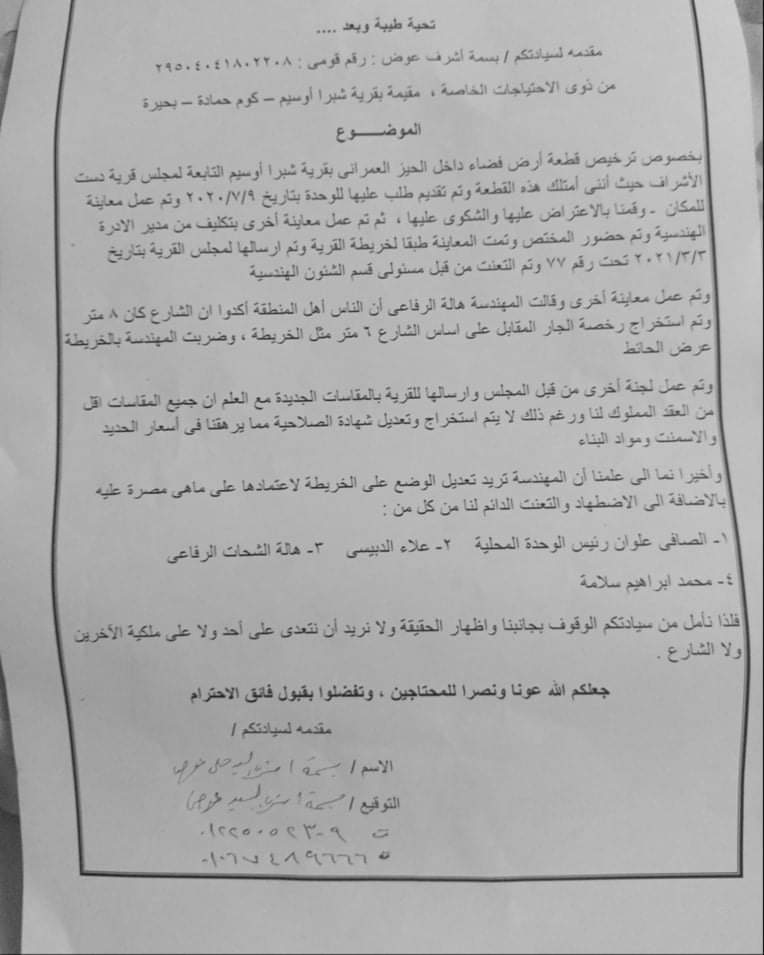 تحية طيبة وبعد ....
مقدمه لسيادتكم / بسمة أشرف عوض : رقم قومى : ٢٩٥٠٤٠٤١٨٠٢٢٠٨
من ذوى الاحتياجات الخاصة ، مقيمة بقرية شبرا أوسيم – كوم حمادة – بحيرة
الموضـــــوع
بخصوص ترخيص قطعة أرض فضاء داخل الحيز العمرانى بقرية شبرا أوسيم التابعة لمجلس قرية دست
الأشراف حيث أننى أمتلك هذه القطعة وتم تقديم طلب عليها للوحدة بتاريخ ٢٠٢٠/٧/٩ وتم عمل معاينة
للمكان - وقمنا بالاعتراض عليها والشكوى عليها ، ثم تم عمل معاينة أخرى بتكليف من مدير الادرة
الهندسية وتم حضور المختص وتمت المعاينة طبقا لخريطة القرية وتم ارسالها لمجلس القرية بتاريخ
٢٠٢١/٣/٣ تحت رقم ٧٧ وتم التعنت من قبل مسئولى قسم الشئون الهندسية
وتم عمل معاينة أخرى وقالت المهندسة هالة الرفاعى أن الناس أهل المنطقة أكدوا ان الشارع كان ٨ متر
وتم استخراج رخصة الجار المقابل على اساس الشارع ٦ متر مثل الخريطة ، وضربت المهندسة بالخريطة
عرض الحائط
وتم عمل لجنة أخرى من قبل المجلس وارسالها للقرية بالمقاسات الجديدة مع العلم ان جميع المقاسات اقل
من العقد المملوك لنا ورغم ذلك لا يتم استخراج وتعديل شهادة الصلاحية مما يرهقنا فى أسعار الحديد
والاسمنت ومواد البناء
وأخيرا نما الى علمنا أن المهندسة تريد تعديل الوضع على الخريطة لاعتمادها على ماهى مصرة عليه
بالاضافة الى الاضطهاد والتعنت الدائم لنا من كل من :
١- الصافى علوان رئيس الوحدة المحلية ٢- علاء الدبيسى ٣- هالة الشحات الرفاعى
٤- محمد ابراهيم سلامة
فلذا نأمل من سيادتكم الوقوف بجانبنا واظهار الحقيقة ولا نريد أن نتعدى على أحد ولا على ملكية الآخرين
ولا الشارع .
جعلكم الله عونا ونصرا للمحتاجين ، وتفضلوا بقبول فائق الاحترام
مقدمه لسيادتكم /
الاسم / بسمة
التوقيع / بسمة
ت ٠١٢٢٥٠٥٢٣٠٩
ت ٠١٠٦٧٤٨٩٦٦٦